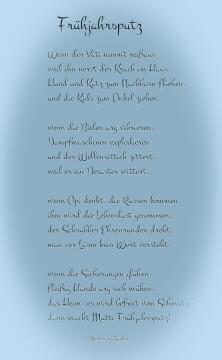 Frühjahrsputz
Wenn der Vati nimmt reißaus
weil ihn nervt der Krach im Haus,
Hund und Katz zum Nachbarn fliehen,
und die Kids zum Onkel ziehen.
wenn die Böden arg vibrieren,
Dampfmaschinen explodieren
und der Wellensittich zittert,
weil er ein Desaster wittert.
wenn Opi denkt, die Russen kommen,
ihm wird die Lebenslust genommen,
der Schrubber Ehrenrunden dreht,
man vor Lärm kein Wort versteht;
wenn die Sicherungen glühen,
fleißig Hände arg sich mühen,
das Heim, es wird befreit vom Schmutz -
dann macht Mutti Frühjahrsputz!